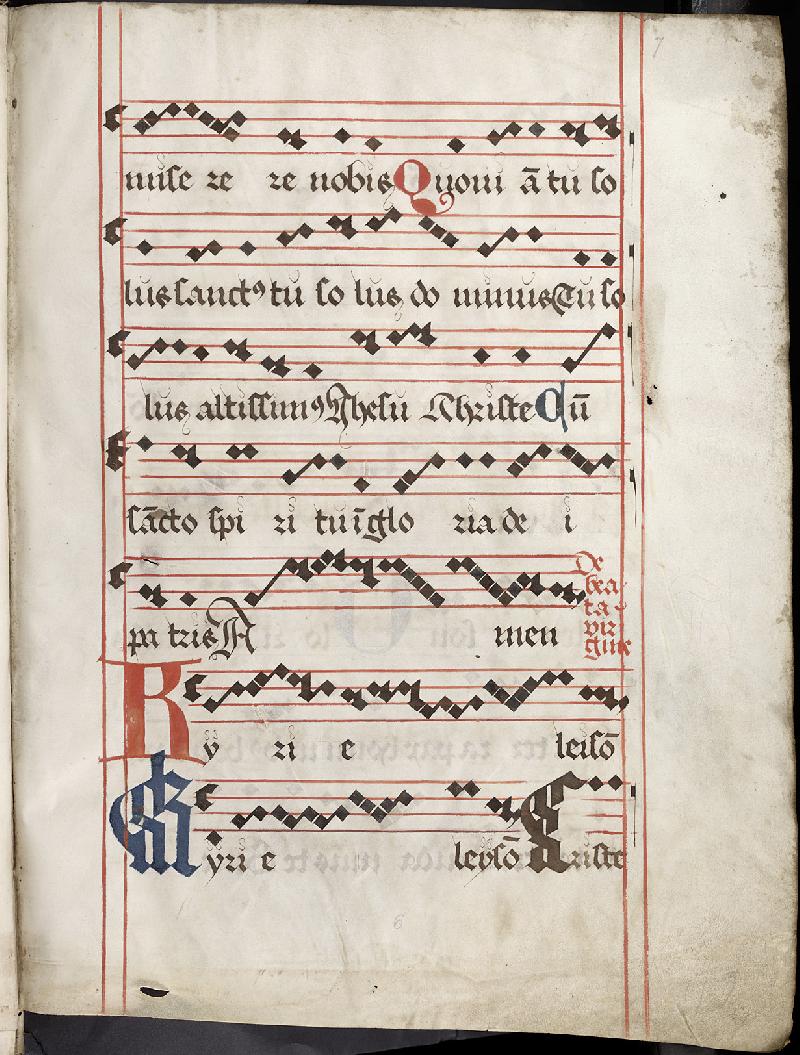 7
mise re re nobis Quoni ā tu so
lus sanctꝰ tu so lus do minus Tu so
lus altissimꝰ Jhesu Christe Cū
sācto spi ri tu ī glo ria de i
pa tris A men De bea ta vir gine
Ky ri e leisō
Kyri e leysō Criste